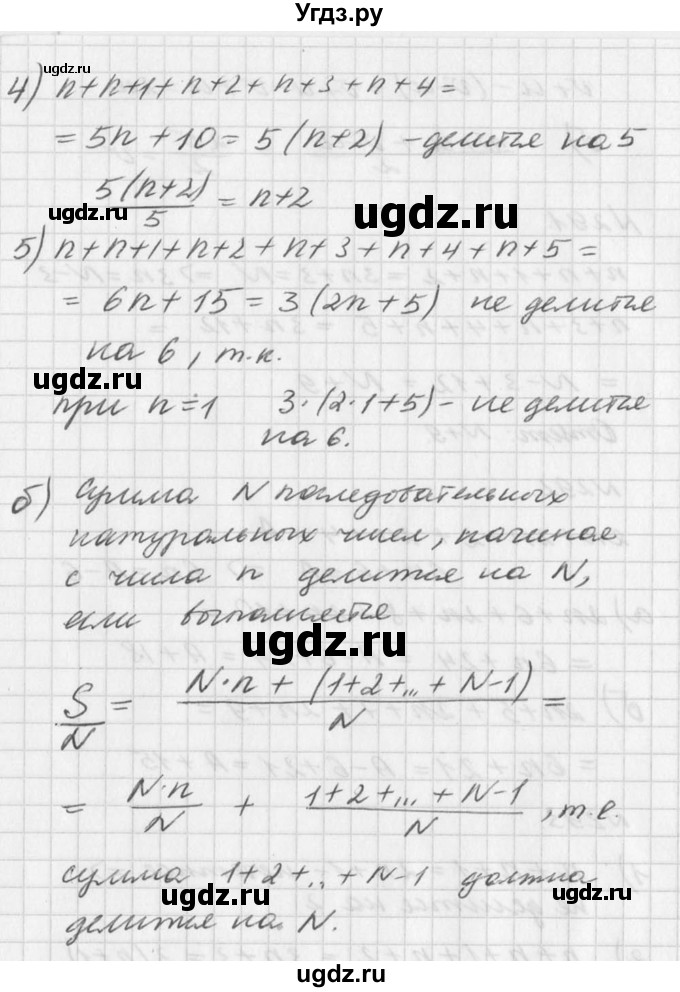 Угдз.ру
ugdz.ru
4) n+n+1+n+2+n+3+n+4=
=5n+10=5(n+2) -делится на 5
5(n+2)/5 = n+2
ugdz.ru
ugdz.ru
ugdz.ru
5) n+n+1+n+2+n+3+n+4+n+5=
= 6n+15=3(2n+5) не делится
на 6, т.к.
ugdz.ru
ugdz.ru
при n=1 3·(2·1+5)- не делится
на 6.
б) Сумма N последовательных
натуральных чисел, начиная
с числа n делится на N,
если выполняется
ugdz.ru
ugdz.ru
S/N = (N·n + (1+2+...+N-1))/N =
= N·n/N + (1+2+...+N-1)/N, т.е.
ugdz.ru
ugdz.ru
сумма 1+2+..+N-1 должна
делится на N.
ugdz.ru
ugdz.ru